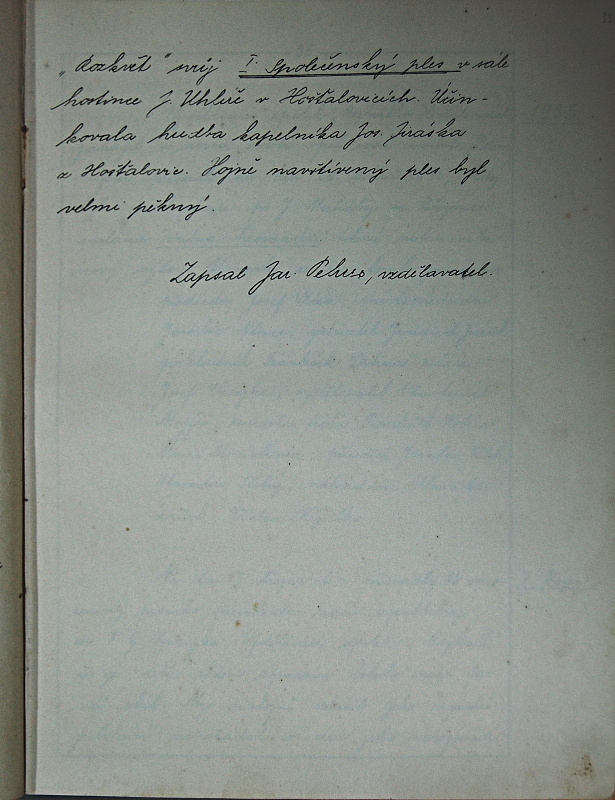 „Rozkvět" svůj I. Společenský ples v sále
hostince J. Uhlíř v Hošťalovicích. Účin-
kovala hudba kapelníka Jos. Jiráska
z Hošťalovic. Hojně navštívený ples byl
velmi pěkný.
Zapsal Jar. vzdělavatel.